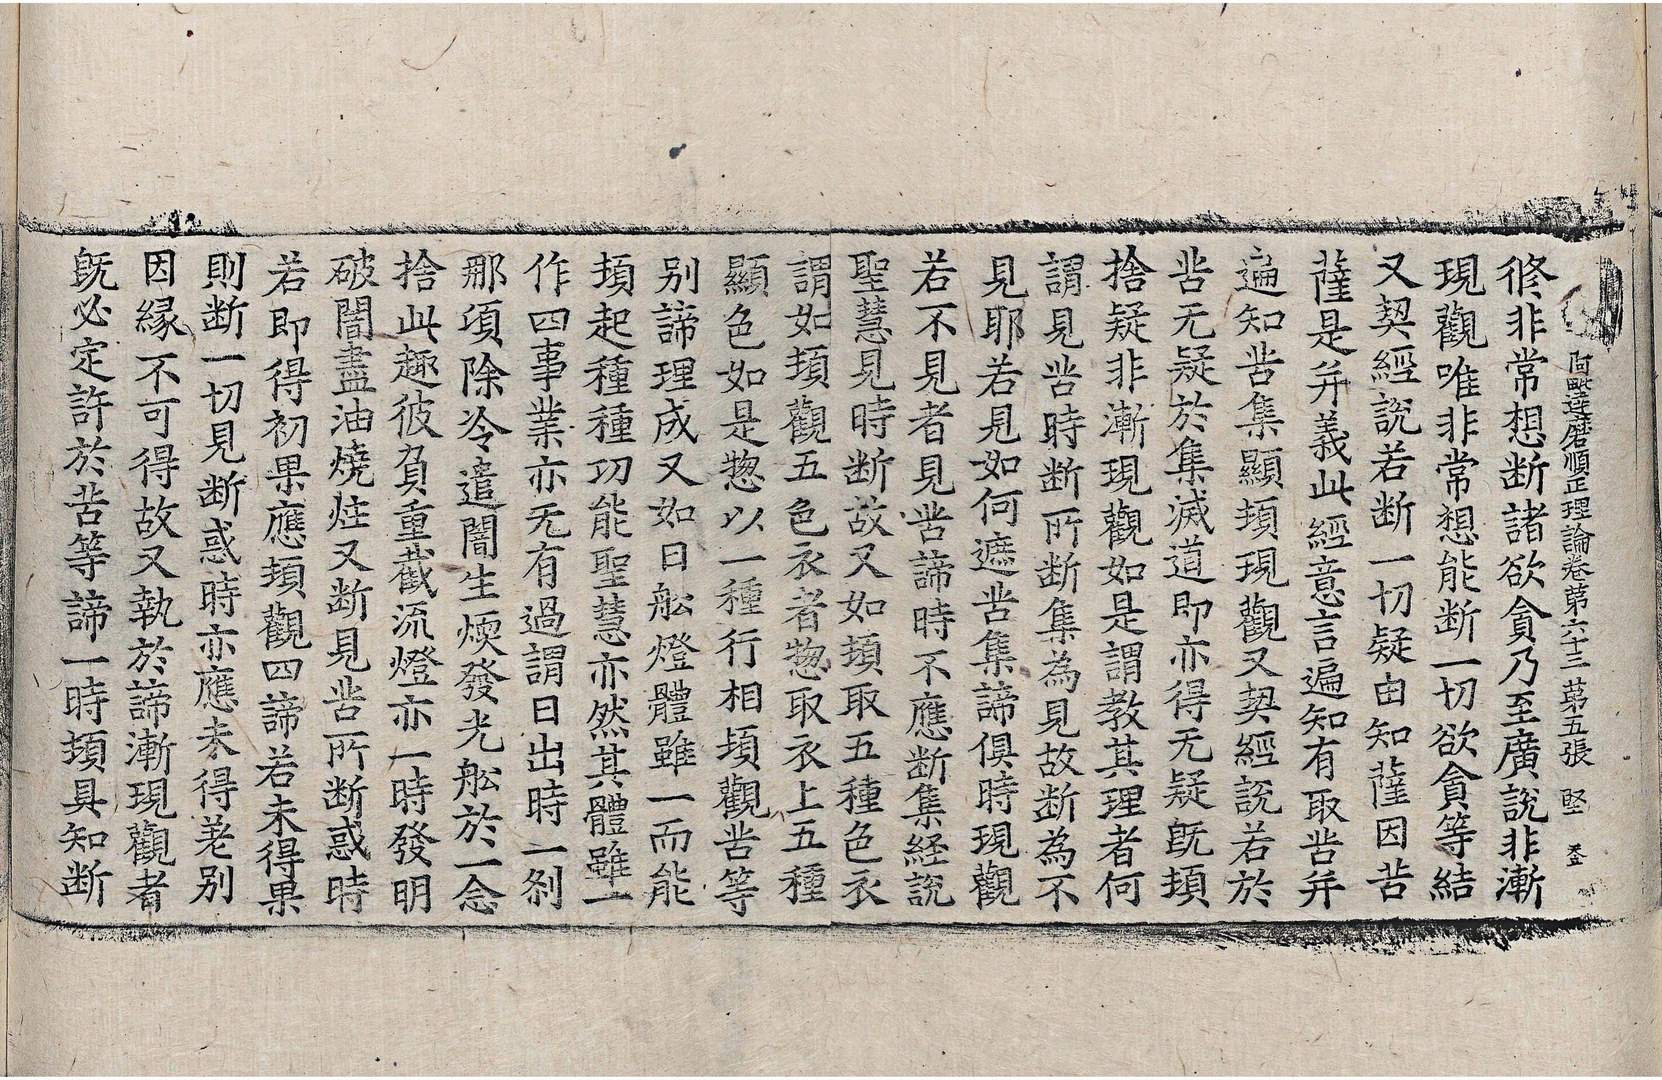 阿毗達磨順正理論卷第六十三 苐五張 堅
修非常想断諸欲貪乃至廣說非漸
現觀唯非常想能断一切欲貪等結
又契經說若断一切疑由知薩因苦
薩是并義此經意言遍知有取苦并
遍知苦集顯頓現觀又契經說若於
苦无疑於集滅道即亦得无疑旣頓
捨疑非漸現觀如是謂教其理者何
謂見苦時断所断集為見故断為不
見耶若見如何遮苦集諦俱時現觀
若不見者見苦諦時不應断集経說
聖慧見時断故又如頓取五種色衣
謂如頓觀五色衣者惣取衣上五種
顯色如是惣以一種行相頓觀苦等
別諦理成又如日舩燈體雖一而能
頓起種種㓛能聖慧亦然其體雖一
作四事業亦无有過謂日出時一刹
那頃除冷遣闇生煗發光舩於一念
捨此趣彼負重截流燈亦一時發明
破闇盡油燒炷又断見苦所断惑時
若即得初果應頓觀四諦若未得果
則断一切見断惑時亦應未得差別
因緣不可得故又執於諦漸現觀者
旣必定許於苦等諦一時頓具知断